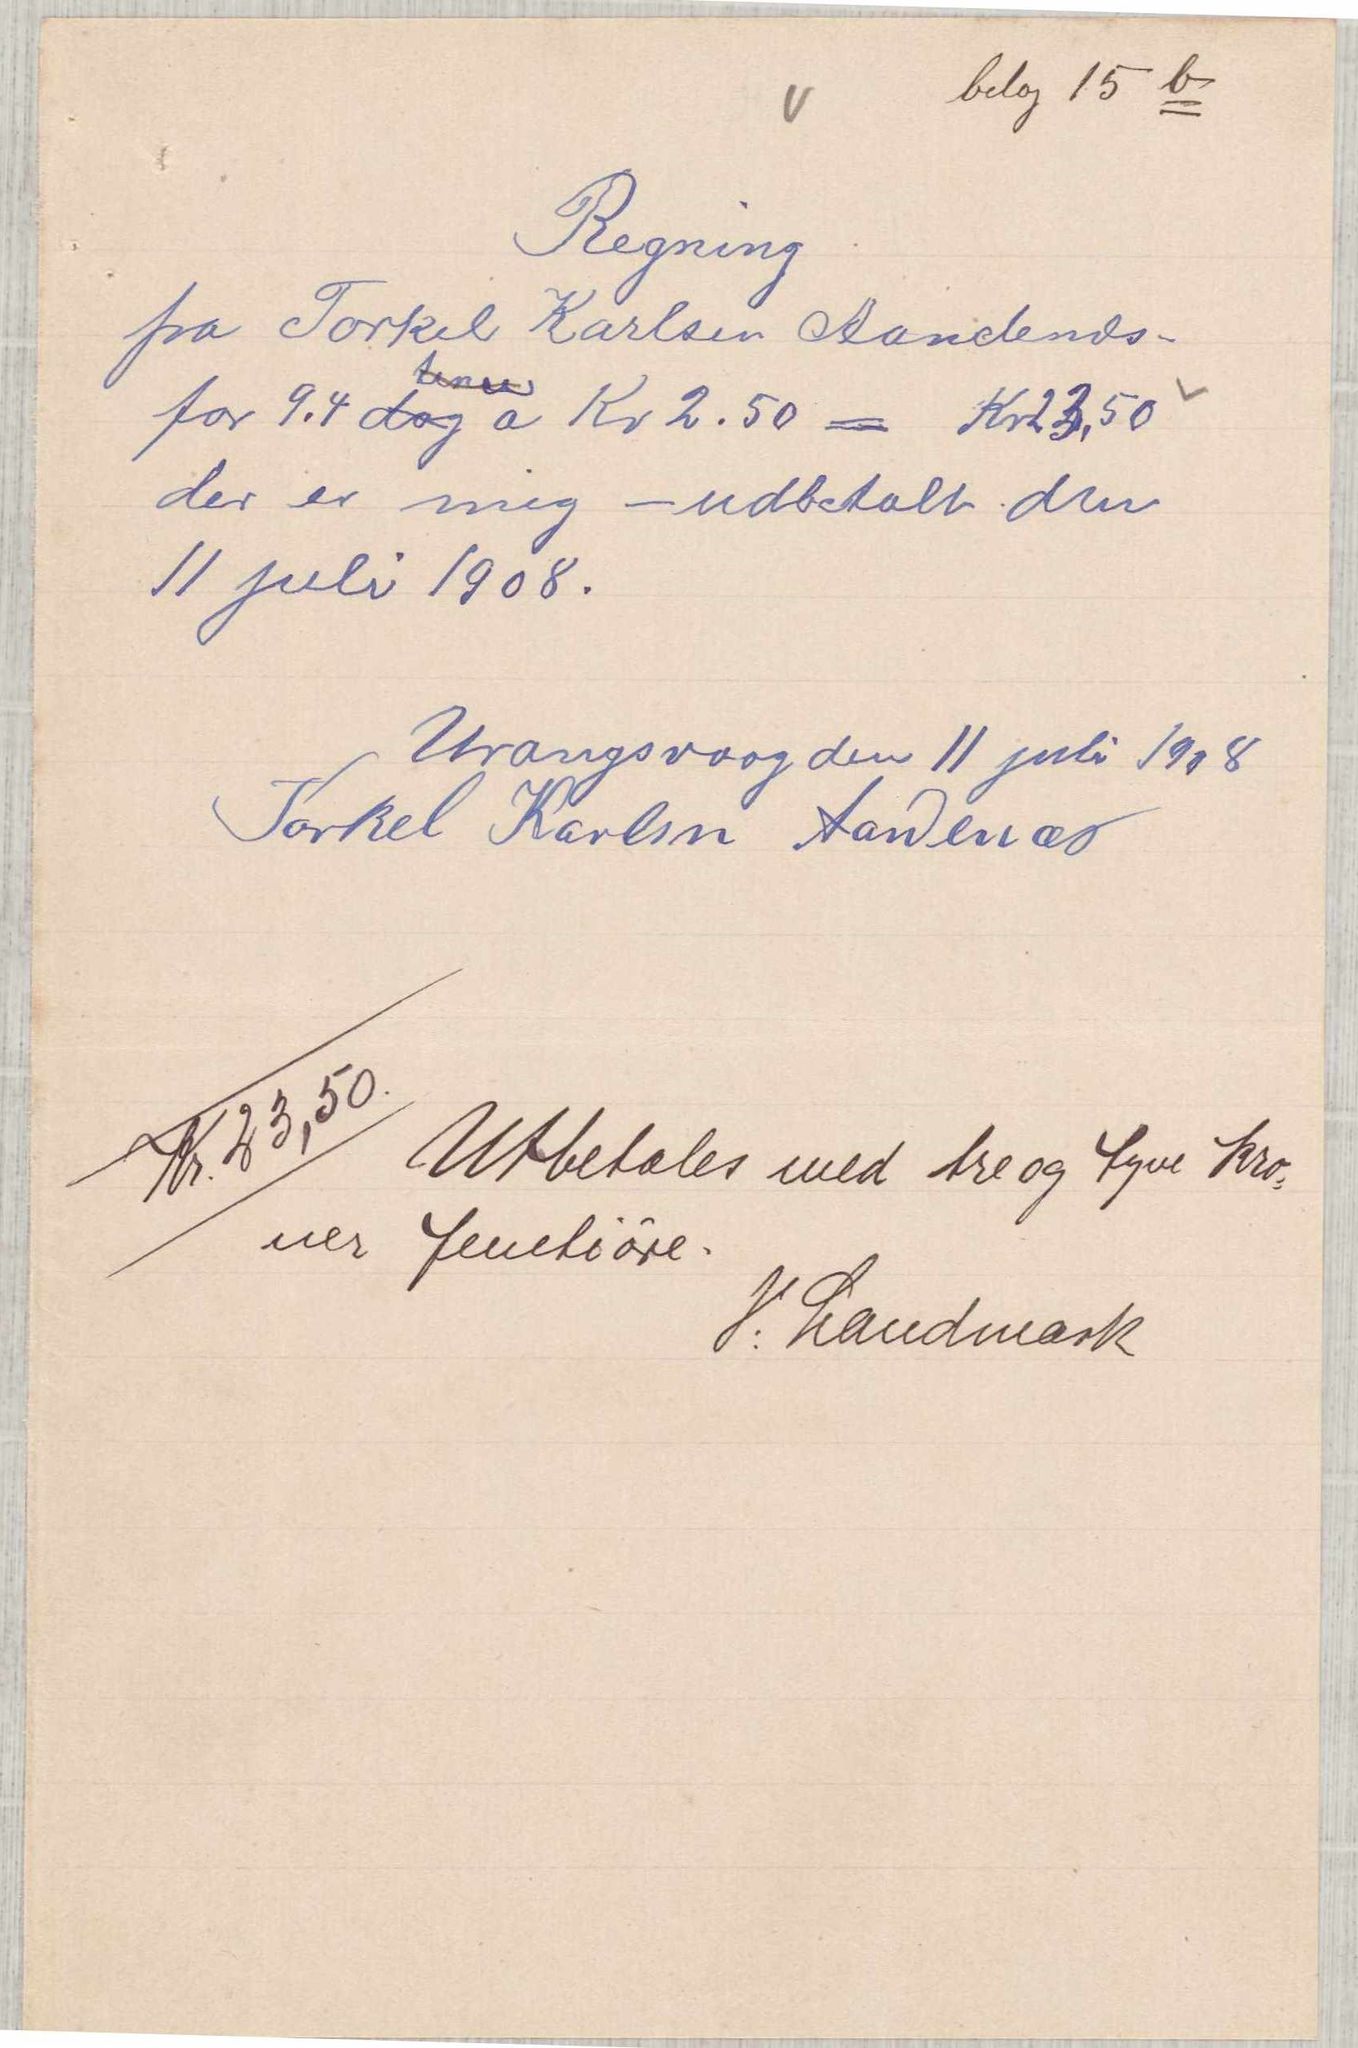 belag 15 b
Regning
fra Torkel Karlsen Aandenæs-
for 9.4 dag a Kr 2.50 = Kr 23,50
der er mig - udbetalt den
11 juli 1908.
Urangsvaag den 11 juli 1908
Torkel Karlsen Aandenæs
Kr. 23,50.
Utbetales med tre og tyve kro=
ner femtiöre.
V: Landmark